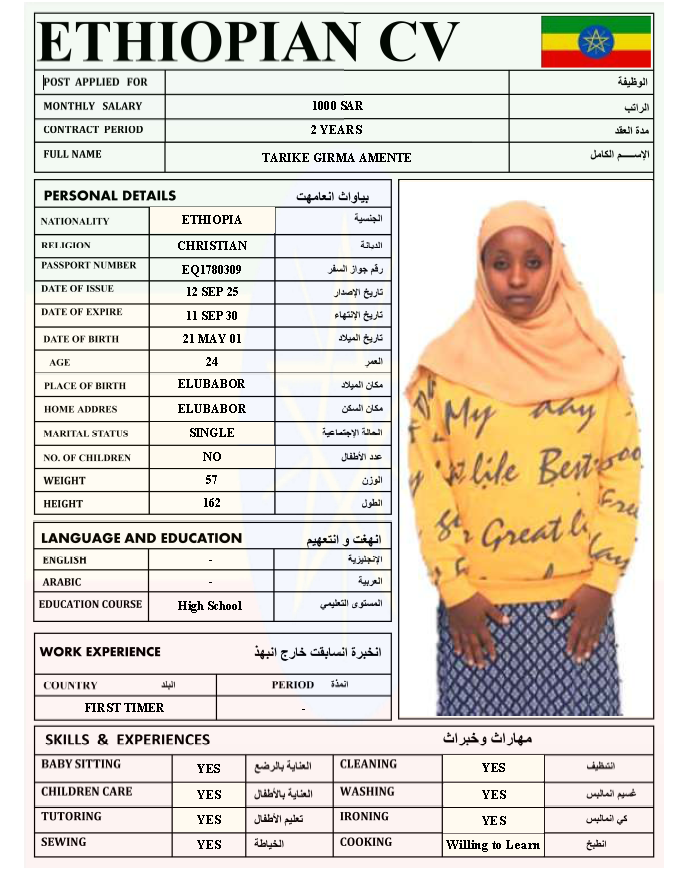 ETHIOPIAN CV
POST APPLIED FOR الوظيفة
MONTHLY SALARY 1000 SAR الراتب
CONTRACT PERIOD 2 YEARS مدة العقد
FULL NAME TARIKE GIRMA AMENTE الإســـم الكامل
PERSONAL DETAILS بياواث انعامهت
NATIONALITY ETHIOPIA الجنسية
RELIGION CHRISTIAN الديانة
PASSPORT NUMBER EQ1780309 رقم جواز السفر
DATE OF ISSUE 12 SEP 25 تاريخ الإصدار
DATE OF EXPIRE 11 SEP 30 تاريخ الإنتهاء
DATE OF BIRTH 21 MAY 01 تاريخ الميلاد
AGE 24 العمر
PLACE OF BIRTH ELUBABOR مكان الميلاد
HOME ADDRES ELUBABOR مكان السكن
MARITAL STATUS SINGLE الحالة الإجتماعية
NO. OF CHILDREN NO عدد الأطفال
WEIGHT 57 الوزن
HEIGHT 162 الطول
My day
life Best
Great
LANGUAGE AND EDUCATION انهغت و انتعهيم
ENGLISH - الإنجليزية
ARABIC - العربية
EDUCATION COURSE High School المستوى التعليمي
WORK EXPERIENCE انخبرة انسابقت خارج انبهذ
COUNTRY البلد PERIOD المدة
FIRST TIMER -
SKILLS & EXPERIENCES مهاراث وخبراث
BABY SITTING YES العناية بالرضع CLEANING YES التنظيف
CHILDREN CARE YES العناية بالأطفال WASHING YES غسيم انمالبس
TUTORING YES تعليم الأطفال IRONING YES كي انمالبس
SEWING YES الخياطة COOKING Willing to Learn انطبخ